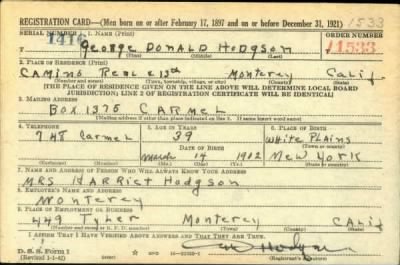 REGISTRATION CARD—(Men born on or after February 17, 1897 and on or before December 31, 1921) 1533
SERIAL NUMBER 1. NAME (Print) ORDER NUMBER
George DONALD Hodgson 11533
(First) (Middle) (Last)
2. PLACE OF RESIDENCE (Print)
CAMINO REAL & 13th Monterey Calif
(Number and street) (Town, township, village, or city) (County) (State)
[THE PLACE OF RESIDENCE GIVEN ON THE LINE ABOVE WILL DETERMINE LOCAL BOARD
JURISDICTION; LINE 2 OF REGISTRATION CERTIFICATE WILL BE IDENTICAL]
3. MAILING ADDRESS
BOX 1375 CARMEL
[Mailing address if other than place indicated on line 2. If same insert word same]
4. TELEPHONE 5. AGE IN YEARS 6. PLACE OF BIRTH
748 Carmel 39 White Plains
DATE OF BIRTH (Town or county)
March 14 1902 New York
(Exchange) (Number) (Mo.) (Day) (Yr.) (State or country)
7. NAME AND ADDRESS OF PERSON WHO WILL ALWAYS KNOW YOUR ADDRESS
MRS HARRIET Hodgson
8. EMPLOYER'S NAME AND ADDRESS
Monterey
9. PLACE OF EMPLOYMENT OR BUSINESS
449 Tyler Monterey CALif
(Number and street or R. F. D. number) (Town) (County) (State)
I AFFIRM THAT I HAVE VERIFIED ABOVE ANSWERS AND THAT THEY ARE TRUE.
D. S. S. Form 1 Hodgson
(Revised 1-1-42) (Registrant's signature)